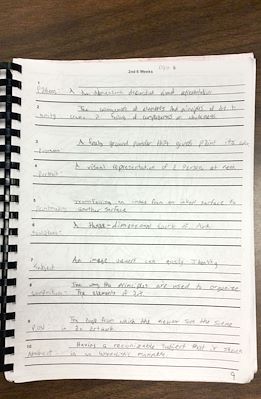 2nd 6 Weeks
1
Pattern: A
2
The of elements and principles of art to
Unity create a feeling of completeness or wholeness
3
A finely ground powder that gives paint its color
4
A visual representation of a person at rest
Portrait:
5
Transferring an image from an inked surface to
Printmaking another surface
6
A three-dimensional work of Art
Sculpture:
7
An image viewers can easily identify
Subject
8
The way the principles are used to organize
The elements of art
9
The angle from which the viewer sees the scene
POV: in an artwork
10
Having a recognizable subject that is shown
Abstract: in an unrealistic manner
9